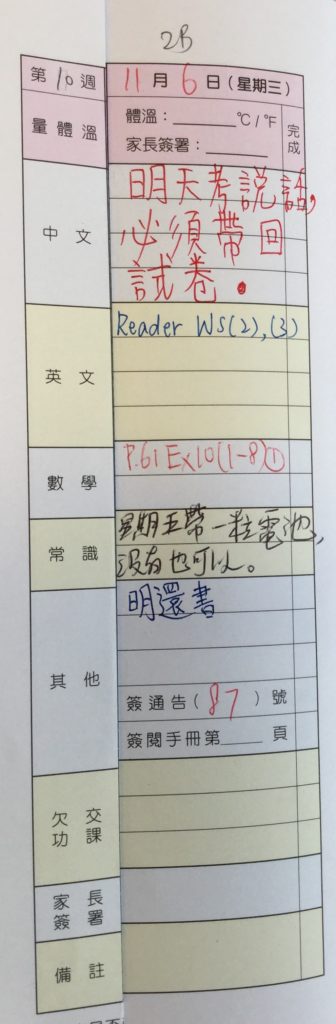 2B
第10週 11月6日(星期三)
量體溫 體溫:______°C/°F 完成
家長簽署:______
中文 明天考說話,
必須帶回
試卷.
英文 Reader WS(2),(3)
數學 P.61 Ex10(1-8)①
常識 星期五帶一粒電池,
沒有也可以。
其他 明還書
簽通告(87)號
簽閱手冊第____頁
欠交
功課
家長
簽署
備註